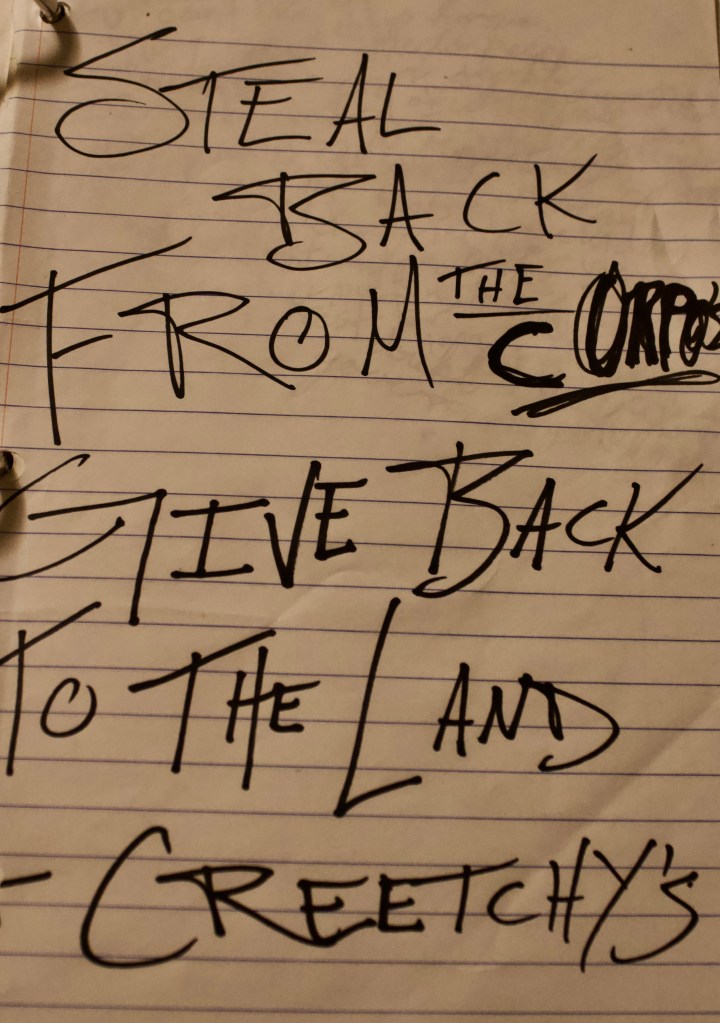 STEAL
BACK
FROM THE CORPO'S
GIVE BACK
TO THE LAND
- CREETCHY'S